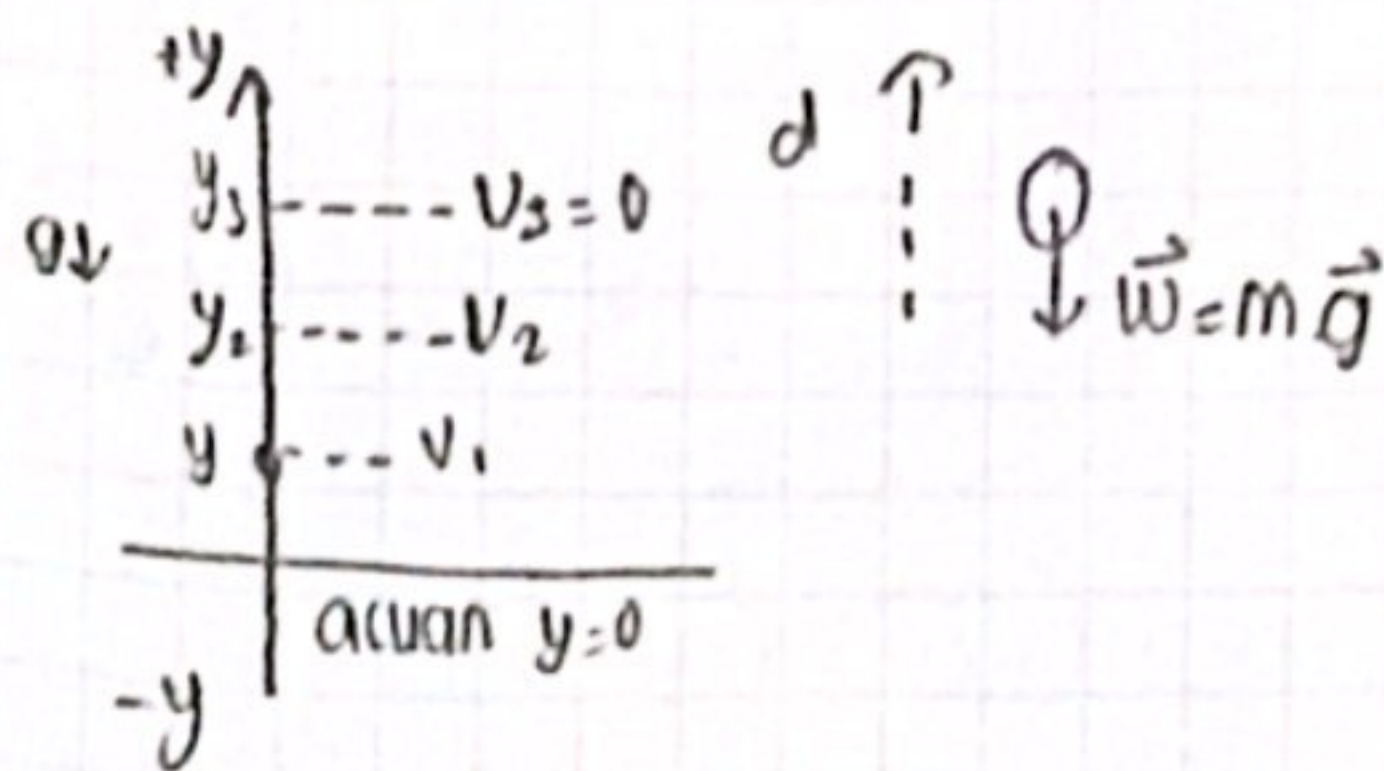 +y
y₃ ---- V₃ = 0
g↓
y₂ ---- V₂
y --- V₁
acuan y=0
-y
d
w⃗ = m g⃗